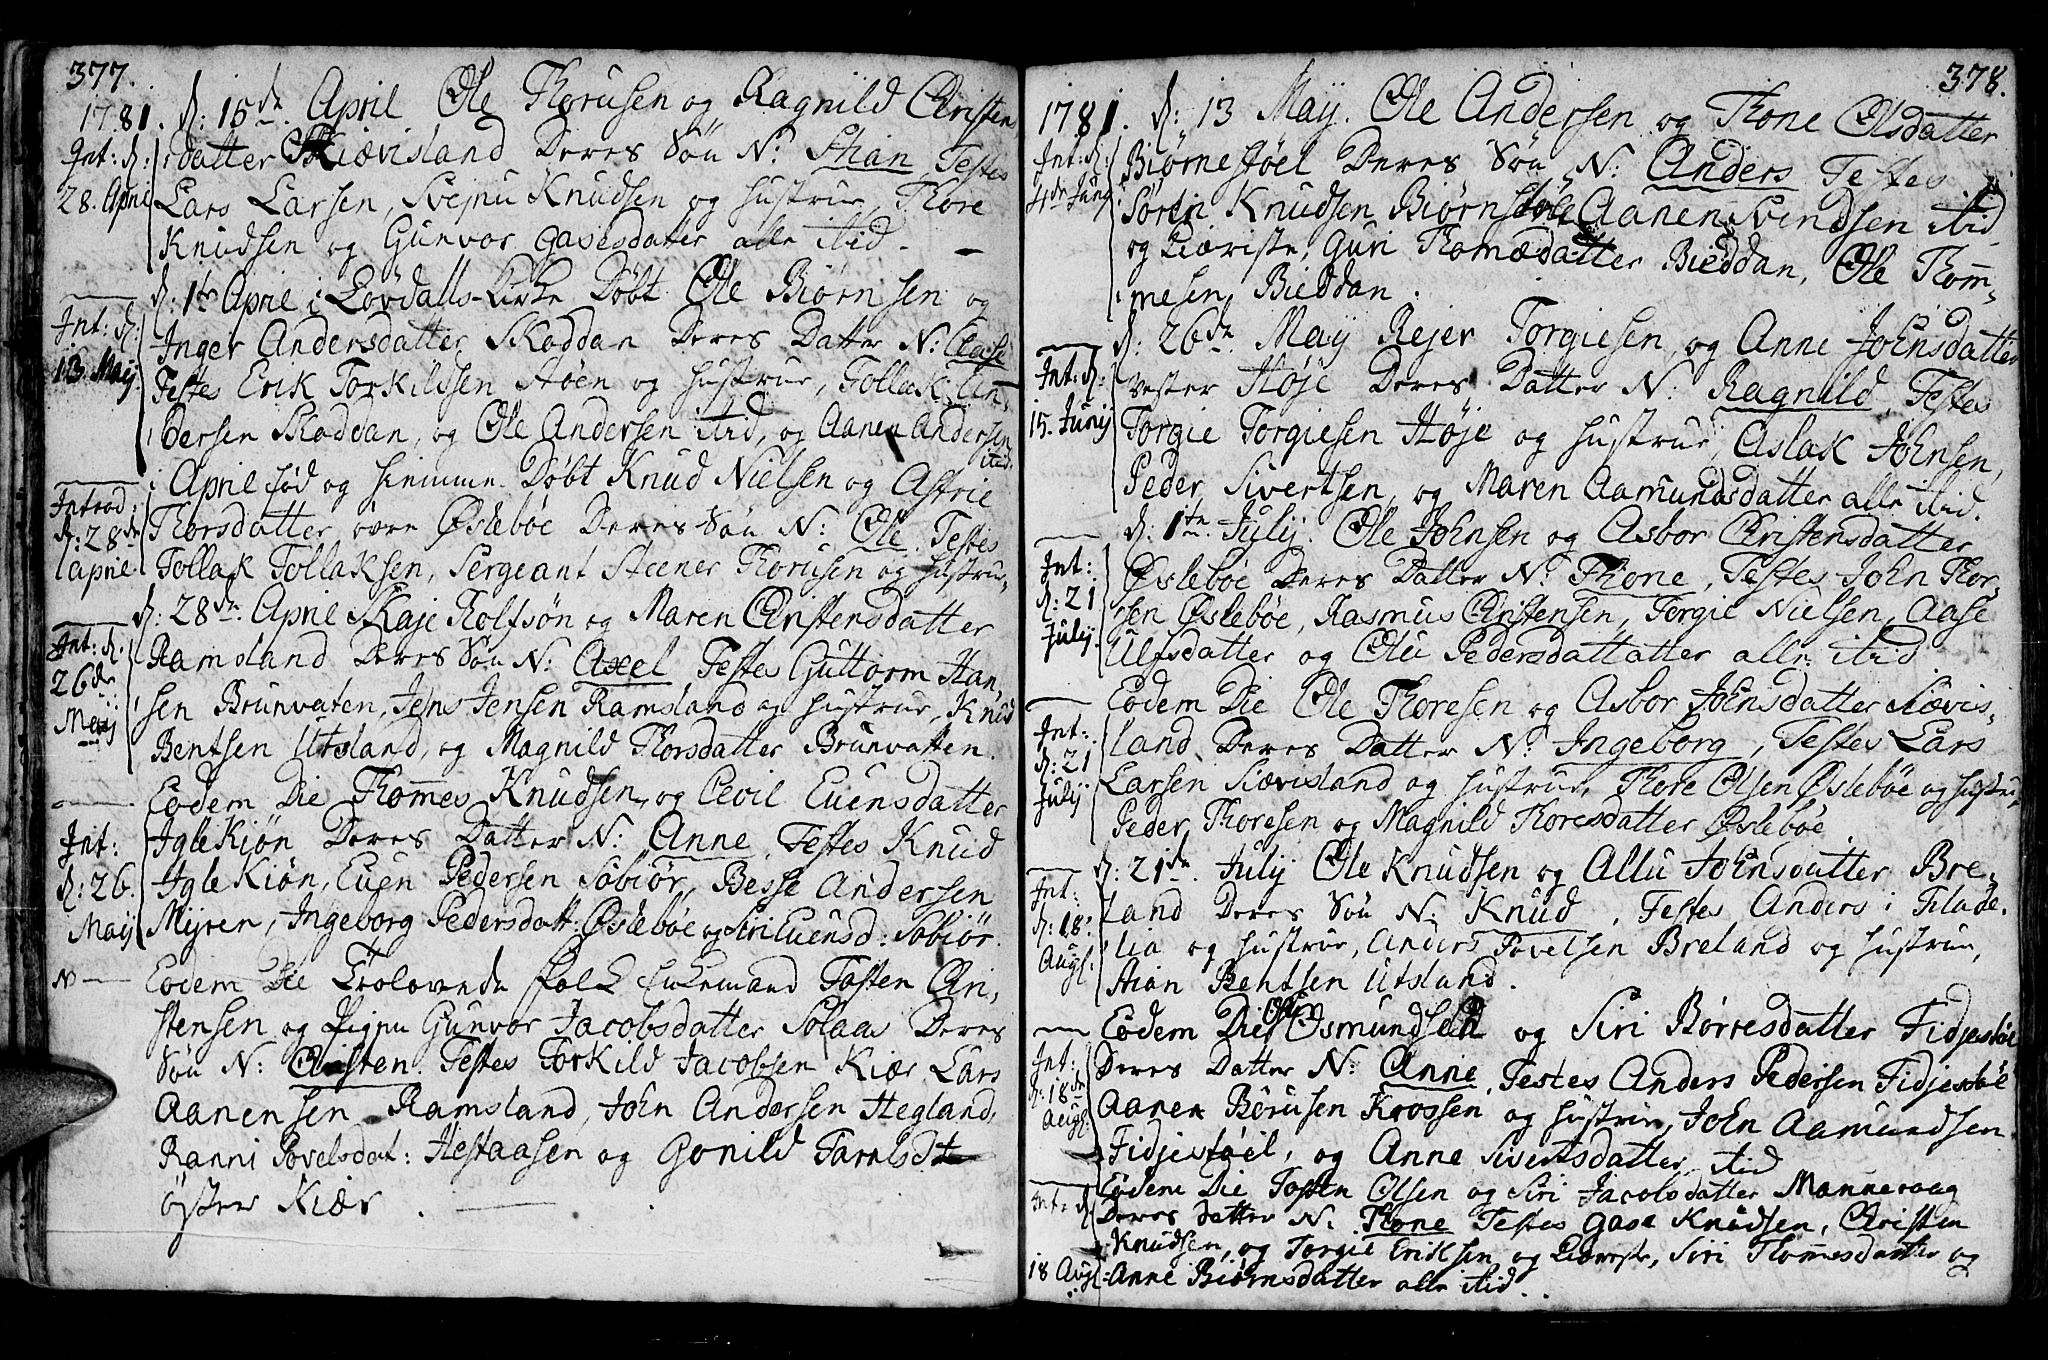 377.
1781. d: 15de April Ole Thorusen og Ragnild Christens
Int: d: datter Skiævisland Deres Søn N: Stian, Testes
28. April Lars Larsen, Svejnu Knudsen og Hustrue, Thore
Knudsen og Gunvor Gasesdatter alle itid.
d: 1te April i Løvdalls-Kirke Døbt Ole Biørnsen og
Int: d: Inger Andersdatter Skoddan Deres Datter N: Aase
13 Maij. Testes Erik Torkildsen Støen og Hustrue, Tollak An-
dersen Skoddan, og Ole Andersen itid, og Aanen Andersen
itid.
i April fød og hiemme Døbt Knud Nielsen og Astrie
Introd: Thorsdatter øvre Øslebøe Deres Søn N: Ole. Testes
d: 28de apríl Tollak Tollaksen, Sergeant Steener Thorusen og Hustrue
d: 28de April Skaje Rolfsøn og Maren Christensdatter
Int: d. Ramsland Deres Søn N: Axel Testes Guttorm Han-
26de Maij sen Brunvaten, Jens Jensen Ramsland og Hustrue, Knud
Bentsen Utsland, og Magnild Thorsdatter Brunvatten.
Eodem Die Thommes Knudsen, og Cecil Euensdatter
Int: Iglekiøn Deres Datter N: Anne, Testes Knud
d: 26. Iglekiøn, Euen Pedersen Søbiør, Besse Andersen
Maij Myren, Ingeborg Pedersdatt: Øslebøe og Siri Euensd: Søbiør.
N Eodem Die Trolovende folk Enkemand Tosten Chri-
stensen og Pigen Gunvor Jacobsdatter Solaas Deres
Søn N: Christen. Testes Torkild Jacobsen Kiær Lars
Aanensen Ramsland, John Andersen Hegland,
Ranni Povelsdat: Hestaasen og Gonild
øster Kiær.
378.
1781. d: 13 Maij. Ole Andersen og Thone Olsdatter
Int: d: Biørnestøel Deres Søn N: Anders Testes
4de Junij Søren Knudsen Biørnstøle Aanen Svendsen itid
og Kiæriste, Guri Thomædatter Bieddan, Ole Thom-
mesen Bieddan.
d: 26de Maij Rejer Torgiesen, og Anne Johnsdatter
Int: d: Vester Høje Deres Datter N: Ragnild, Testes
15. Junij Torgie Torgiesen Høje og Hustrue, Aslak Johnsen,
Peder Sivertsen, og Maren Aamundsdatter alle itid.
d: 1te Julij. Ole Johnsen og Asbor Christensdatter
Int: Øslebøe Deres Datter N: Thone, Testes John Thor-
d: 21 sen Øslebøe, Rasmus Christensen, Torgie Nielsen, Aase
Julij. Ulfsdatter og Olu Pedersdattatter alle itid.
Eodem Die Ole Thoresen og Asbor Johnsdatter Siævis-
Int: land Deres Datter N: Ingeborg, Testes Lars
d: 21 Larsen Siævisland og Hustrue, Thore Olsen Øslebøe og Hustru
Julij Peder Thoresen og Magnild Thoresdatter Øslebøe.
d: 21de Julij Ole Knudsen og Allu Johnsdatter Bre-
Int: land Deres Søn N: Knud, Testes Anders i Filade-
d: 18. lia og Hustrue, Anders Povelsen Breland og Hustrue,
Augl: Stian Bentsen Utsland.
Eodem Die Ole Osmundsen og Siri Børresdatter Fidjestøl
Int: Deres Datter N: Anne, Testes Anders Pedersen Fidjestøel
d: 18de Aanen Børusen Krossen og Hustrue, John Aamundsen
Augl: Fidjestøel, og Anne Sivertsdatter itid
Eodem Die Tosten Olsen og Siri Jacobsdatter Manneraag
Int: d: Deres datter N: Thone Testes Gase Knudsen, Christen
Knudsen, og Torgie Eriksen og Kiæreste, Siri Thommesdatter og
18 Augl: Anne Biørnsdatter alle itid.